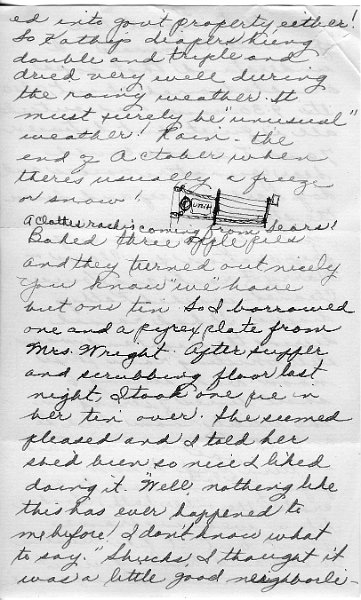 ed into govt property either!
So Kathy's diapers hung
double and triple and
dried very well during
the rainy weather. It
must surely be "unusual"
weather! Rain - the
end of October when
there's usually a freeze
or snow!
Unit
A clothes rack is coming from Sears!
Baked three apple pies
and they turned out nicely
You know "we" have
but one tin So I borrowed
one and a pyrex plate from
Mrs. Wright. After supper
and scrubbing floor last
night, I took one pie in
her tin over. She seemed
pleased and I told her
she'd been so nice I liked
doing it. "Well, nothing like
this has ever happened to
me before! I don't know what
to say." Shucks, I thought it
was a little good neighborli-